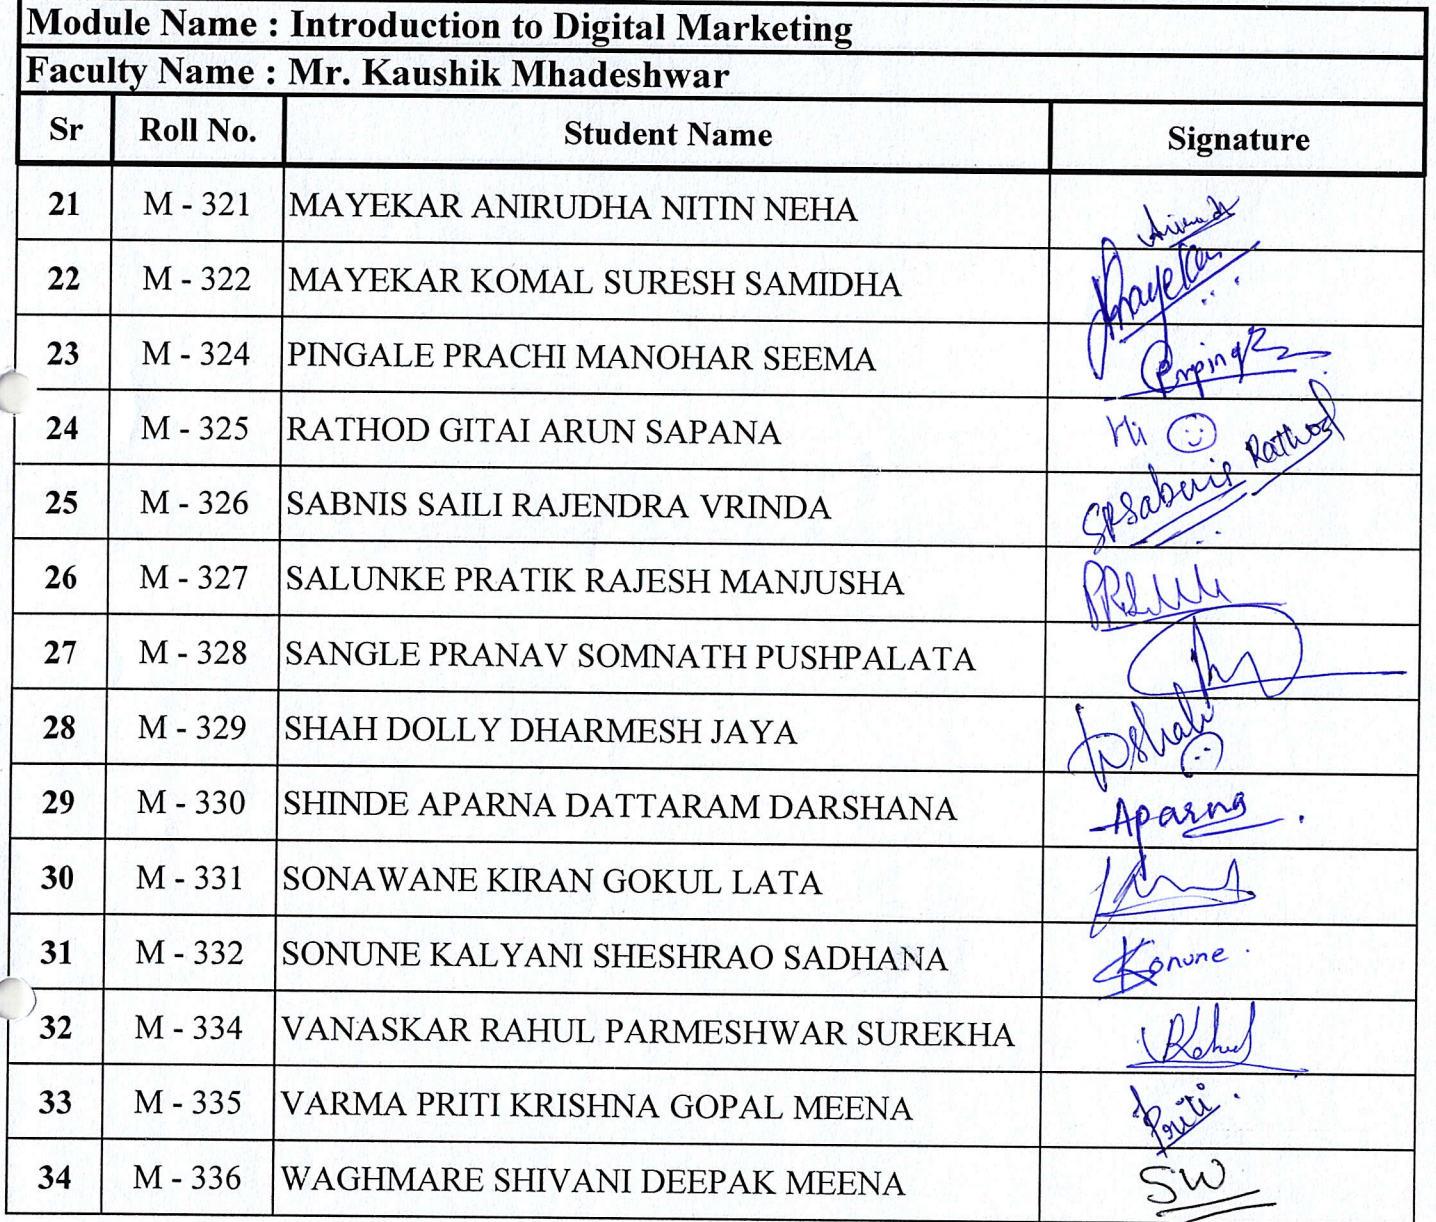 Module Name : Introduction to Digital Marketing
Faculty Name : Mr. Kaushik Mhadeshwar
Sr Roll No. Student Name Signature
21 M - 321 MAYEKAR ANIRUDHA NITIN NEHA
22 M - 322 MAYEKAR KOMAL SURESH SAMIDHA
23 M - 324 PINGALE PRACHI MANOHAR SEEMA
24 M - 325 RATHOD GITAI ARUN SAPANA Hi Rathod
25 M - 326 SABNIS SAILI RAJENDRA VRINDA SRSabnis
26 M - 327 SALUNKE PRATIK RAJESH MANJUSHA
27 M - 328 SANGLE PRANAV SOMNATH PUSHPALATA
28 M - 329 SHAH DOLLY DHARMESH JAYA
29 M - 330 SHINDE APARNA DATTARAM DARSHANA Aparna
30 M - 331 SONAWANE KIRAN GOKUL LATA
31 M - 332 SONUNE KALYANI SHESHRAO SADHANA
32 M - 334 VANASKAR RAHUL PARMESHWAR SUREKHA Rahul
33 M - 335 VARMA PRITI KRISHNA GOPAL MEENA Priti
34 M - 336 WAGHMARE SHIVANI DEEPAK MEENA SW